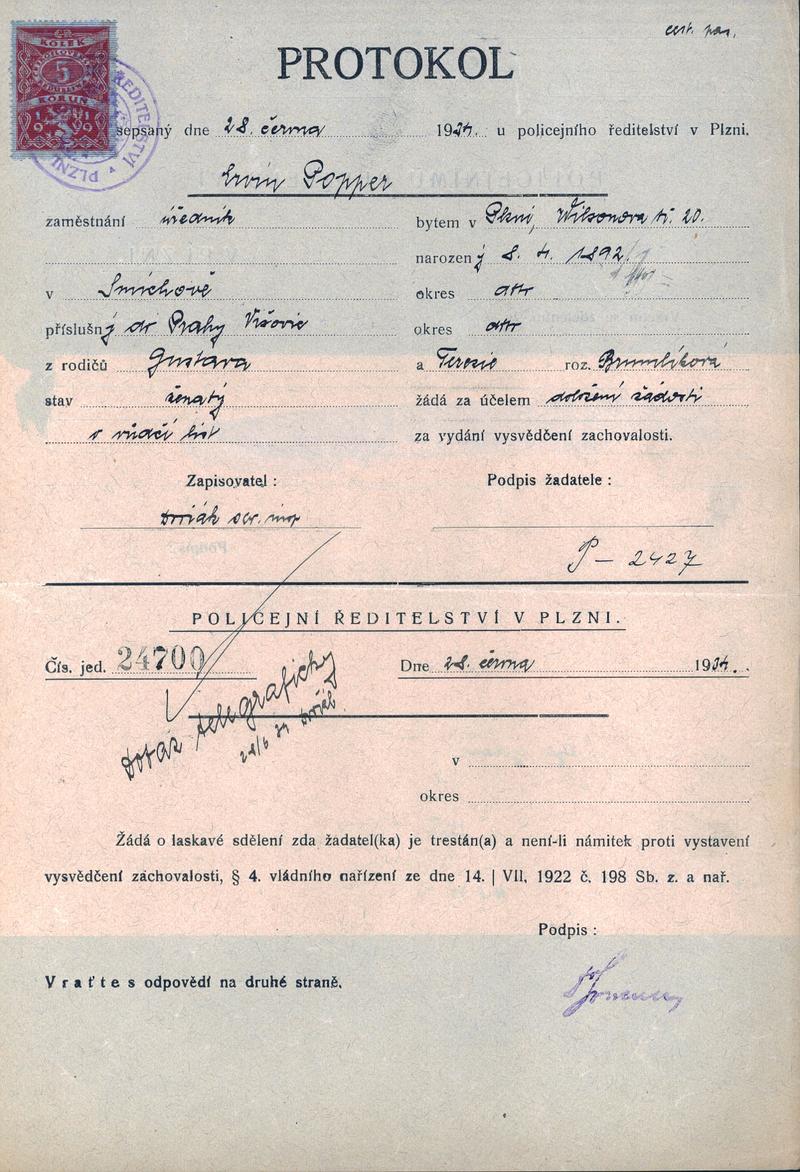 cest. pas.
KOLEK
5
KORUN
1919
ŘEDITELSTVÍ
PLZNI
PROTOKOL
sepsaný dne 28. června 1934. u policejního ředitelství v Plzni.
Ervín Popper
zaměstnání úředník bytem v Plzni, Wilsonova tř. 20.
narozený 8. 4. 1892
v Smíchově okres dtto
příslušný do Prahy Vršovic okres dtto
z rodičů Gustava a Terezie roz. Brumlíková
stav ženatý žádá za účelem doložení žádosti
o vůdčí list za vydání vysvědčení zachovalosti.
Zapisovatel : Podpis žadatele :
P – 2427
POLICEJNÍ ŘEDITELSTVÍ V PLZNI.
Čís. jed. 24700 Dne 28. června 1934.
Dotaz telegraficky
v
okres
Žádá o laskavé sdělení zda žadatel(ka) je trestán(a) a není-li námitek proti vystavení
vysvědčení zachovalosti, § 4. vládního nařízení ze dne 14. | VII. 1922 č. 198 Sb. z. a nař.
Podpis :
Vraťte s odpovědí na druhé straně.